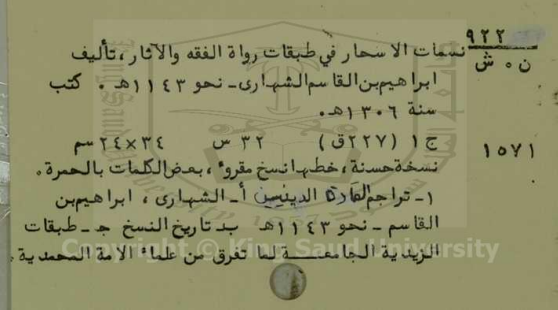 ٩٢٢
ن ٠ ش
نسمات الاسحار في طبقات رواة الفقه والآثار، تأليف
ابراهيم بن القاسم الشهارى - نحو ١١٤٣هـ ٠ كتب
سنة ١٣٠٦هـ٠
١٥٧١
ج ١ (٢٢٧ق) ٣٢ س ٣٤×٢٤ سم
نسخة حسنة، خطها نسخ مقروء، بعض الكلمات بالحمرة٠
١- تراجم القادة الدينيين أ- الشهارى، ابراهيم بن
القاسم - نحو ١١٤٣هـ ب- تاريخ النسخ ج- طبقات
الزيدية الجامعة لما تفرق من علماء الامة المحمدية ٠
Copyright © King Saud University